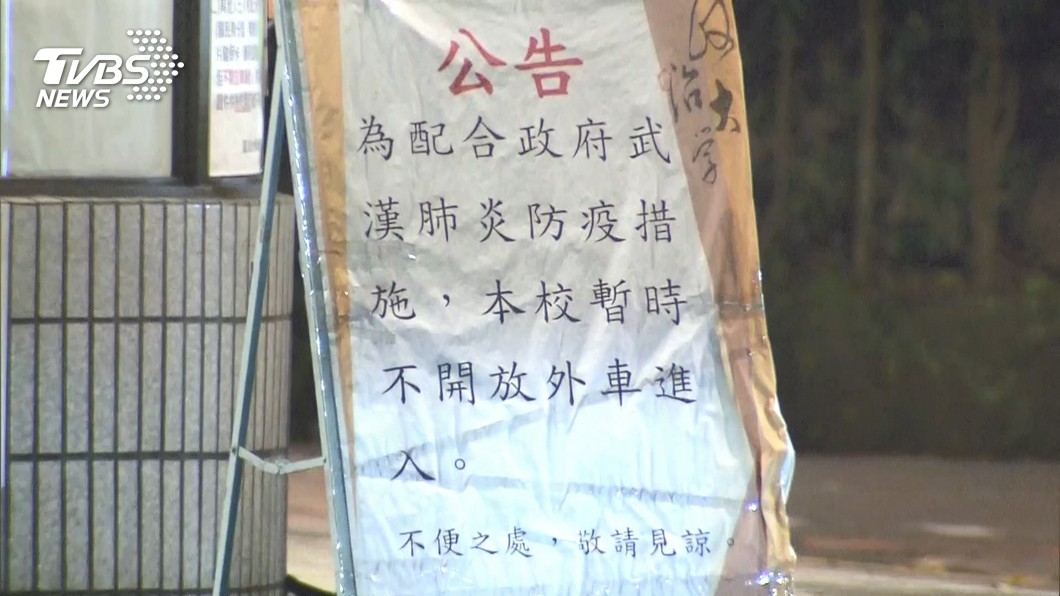 TVBS
NEWS
公告
為配合政府武
漢肺炎防疫措
施，本校暫時
不開放外車進
入。
不便之處，敬請見諒。
政治大学